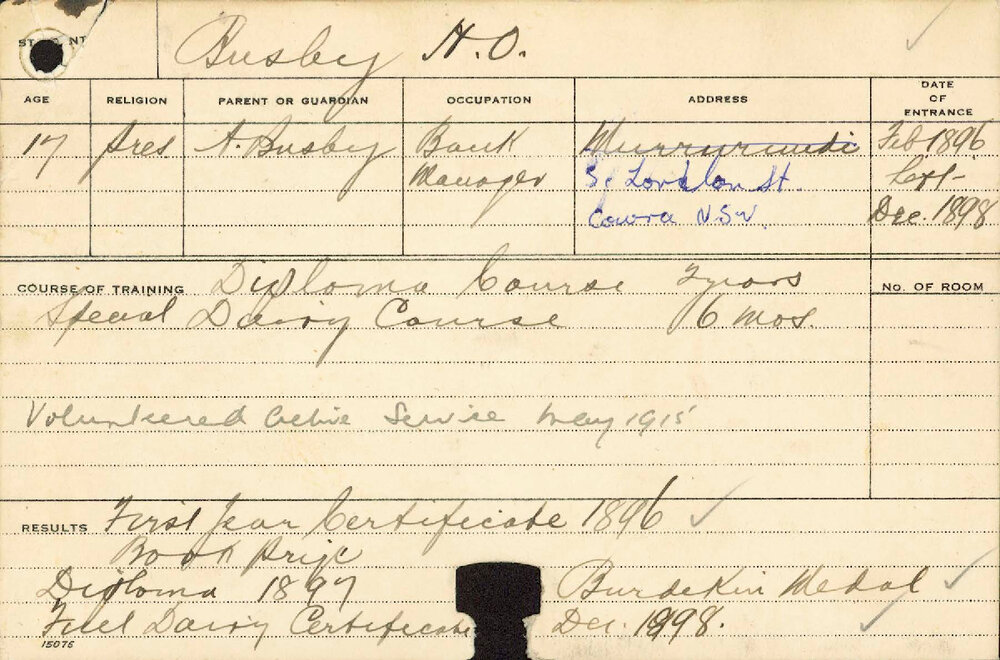 STUDENT Busby H.O.
AGE RELIGION PARENT OR GUARDIAN OCCUPATION ADDRESS DATE OF ENTRANCE
17 Pres A. Busby Bank Manager Murrurundi Feb 1896
London St. Sept-
Cowra N.S.W. Dec. 1898
COURSE OF TRAINING Diploma Course 2 years No. OF ROOM
Special Dairy Course 6 mos.
Volunteered Active Service May 1915
RESULTS First Year Certificate 1896
Book Prize
Diploma 1897 Burdekin Medal
Full Dairy Certificate Dec. 1898.
15076